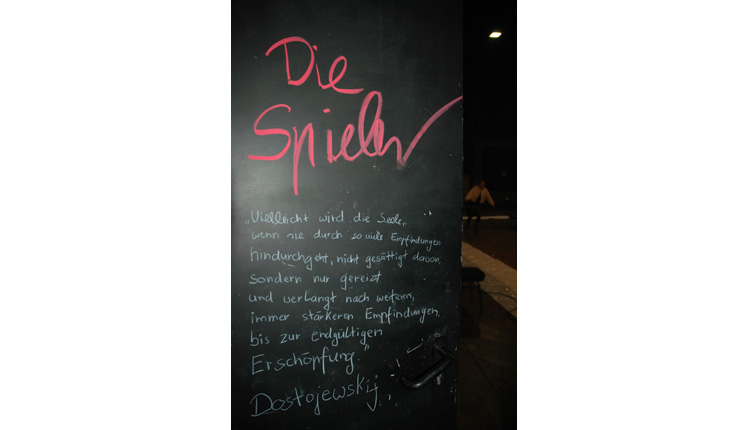 Die
Spieler
„Vielleicht wird die Seele,
wenn sie durch so viele Empfindungen
hindurchgeht, nicht gesättigt davon,
sondern nur gereizt
und verlangt nach weiteren,
immer stärkeren Empfindungen,
bis zur endgültigen
Erschöpfung."
Dostojewskij